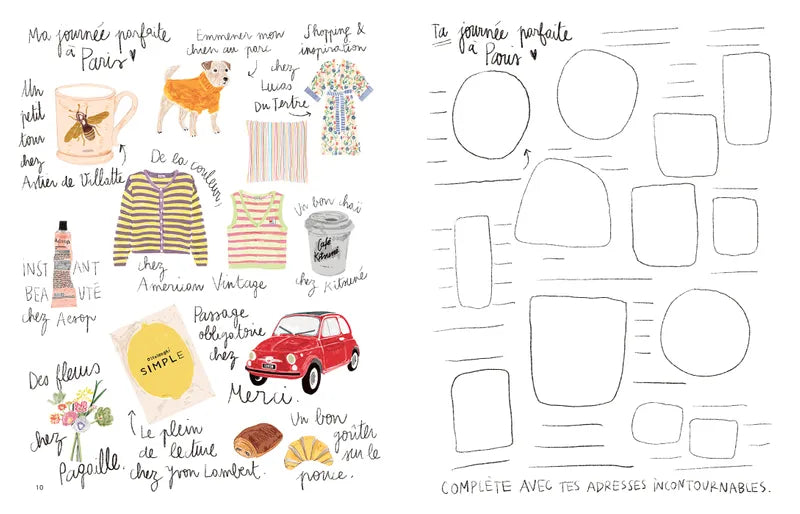 Ma journée parfaite
à Paris
Emmener mon
chien au parc
Shopping &
inspiration
chez
Lucas
Du Tertre
Un
petit
tour
chez
Astier de Villatte
De la couleur,
chez
American Vintage
Un bon chaï
Café
Kitsuné
chez Kitsuné
Aesop
INSTANT
BEAUTÉ
chez Aesop
Passage
obligatoire
chez
Merci.
OTTOLENGHI
SIMPLE
Des fleurs
chez
Pagaille.
Le plein
de lecture
chez Yvon Lambert.
Un bon
goûter
sur le
pouce.
10
Ta journée parfaite
à Paris
COMPLÈTE AVEC TES ADRESSES INCONTOURNABLES.